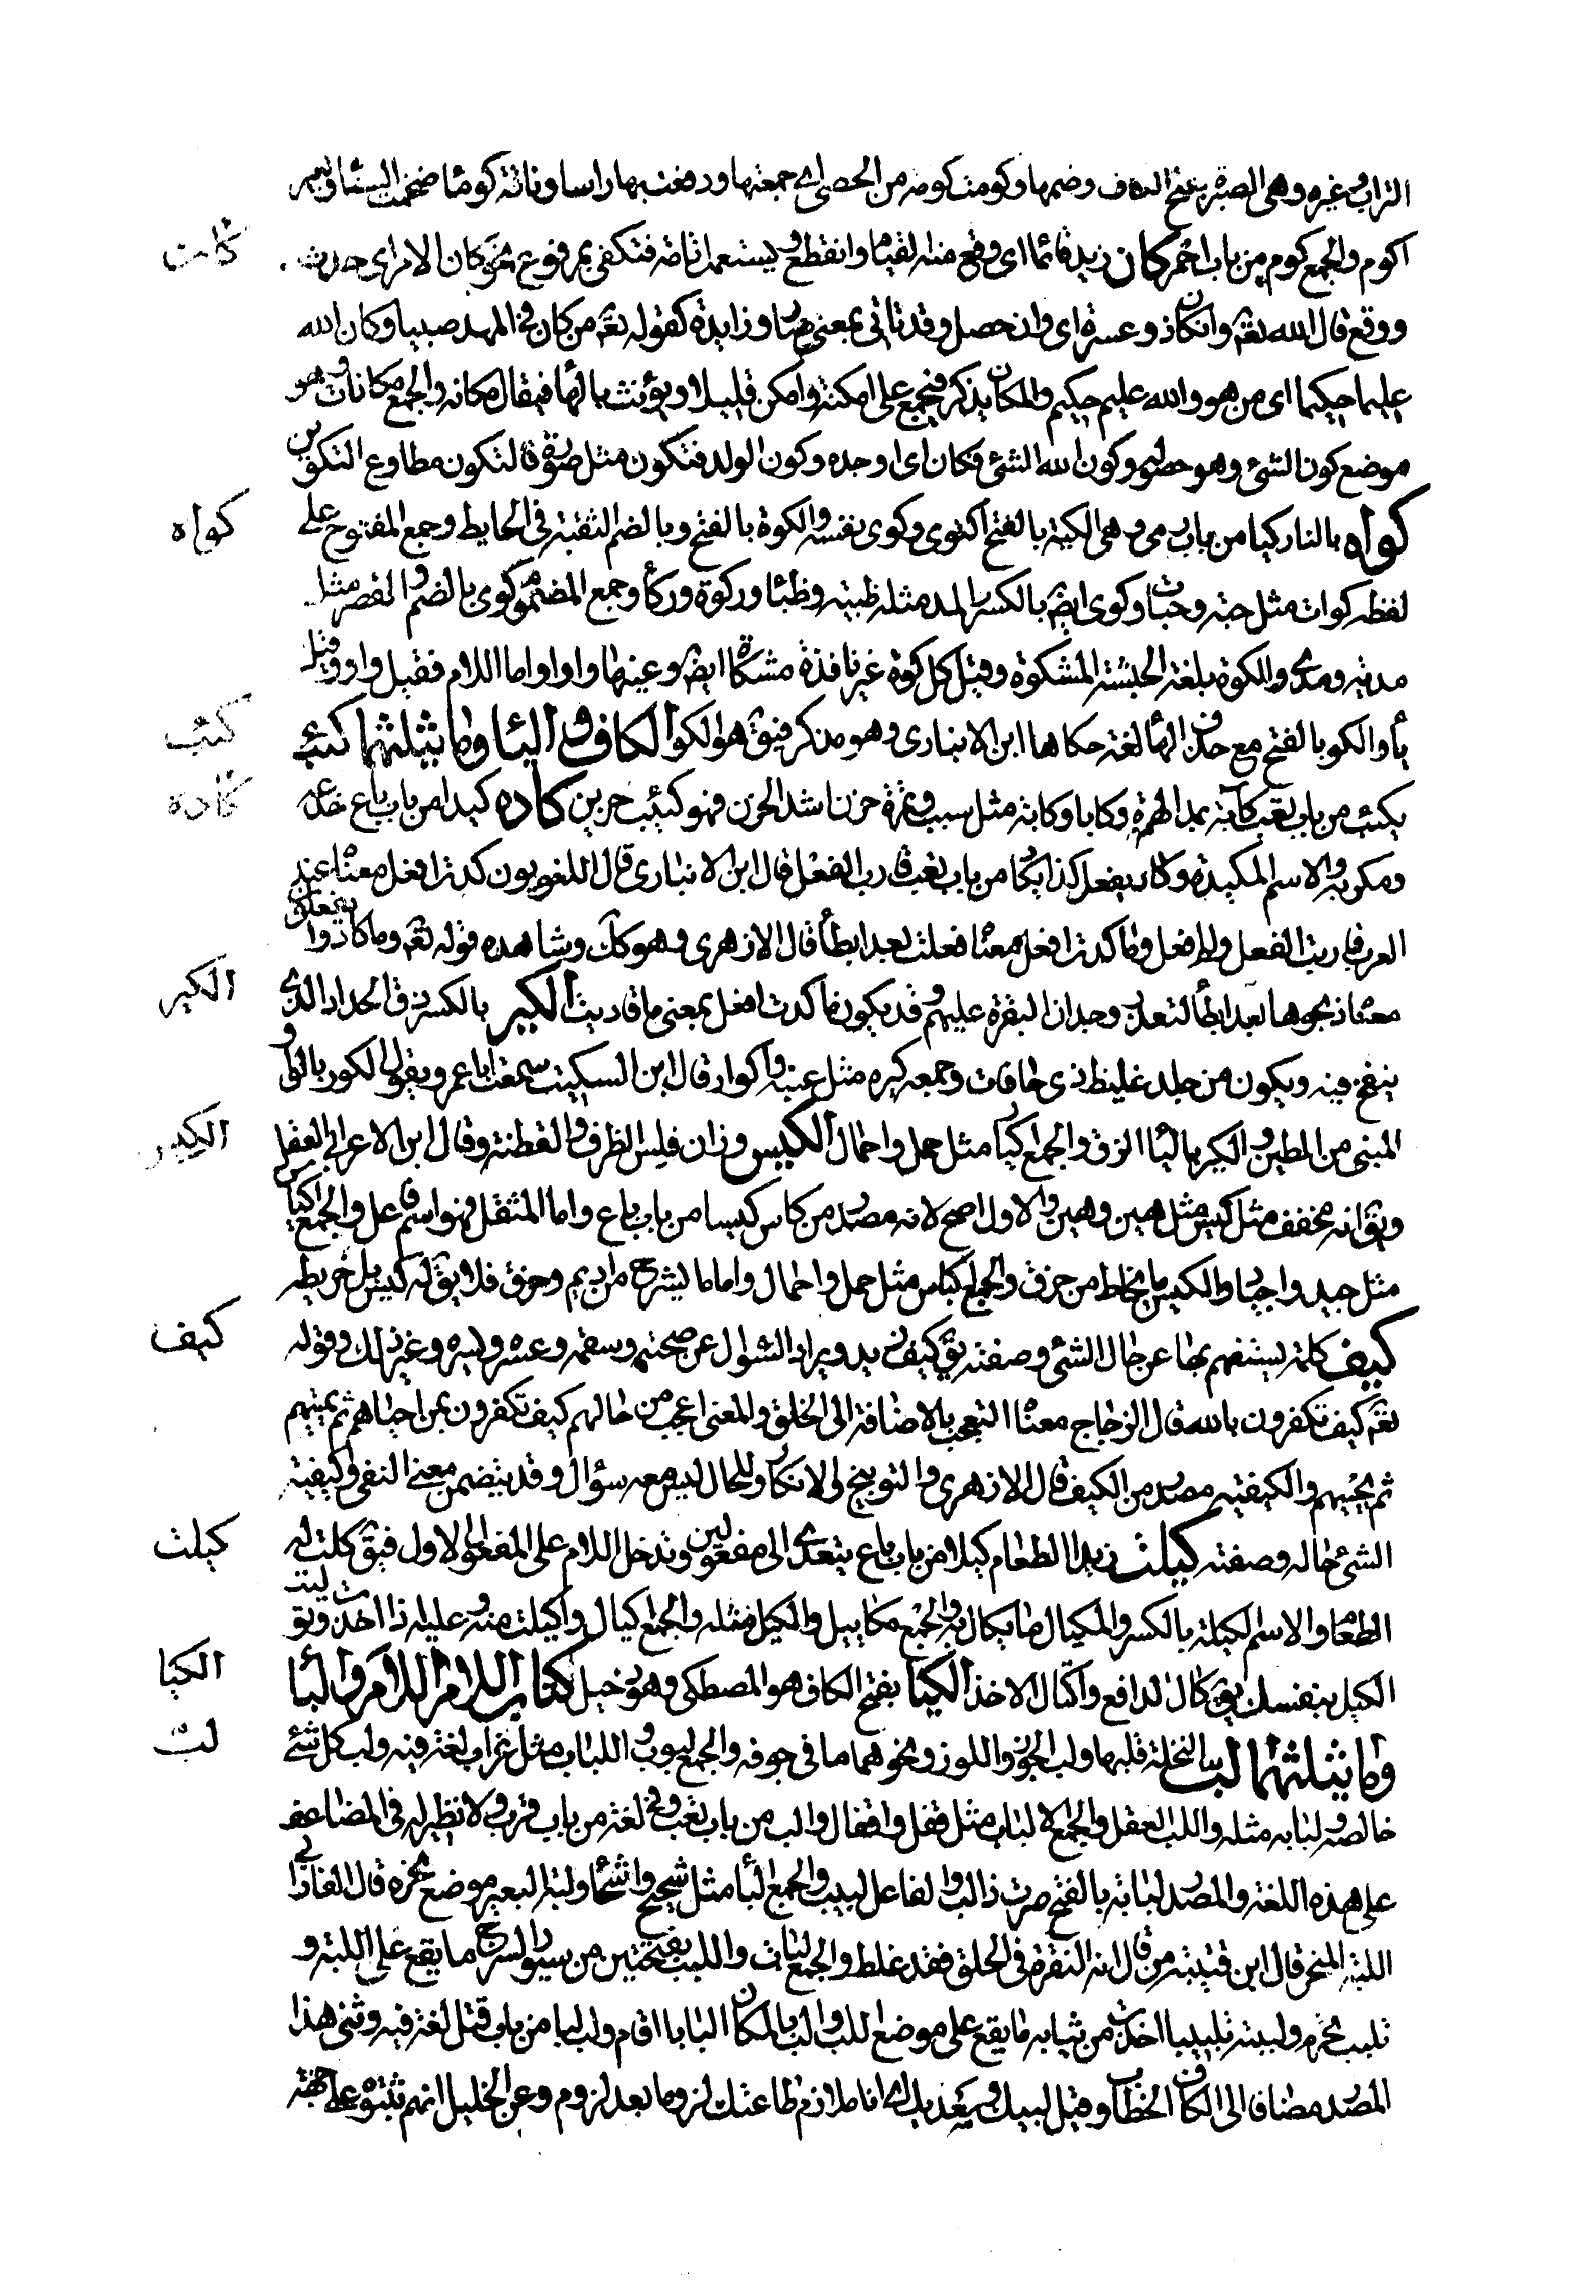 التراب وغيره وهى الصبرة بفتح الكاف وضمها وكومت كومة من الحصى اى جمعتها ورفعت لها راسا وناقة كوما ضخمة السنام وبعير
اكوم والجمع كوم من باب احمر كان زيد قائما اى وقع منه القيام وانقطع ويستعمل تامة فتكفى بمرفوع نحو كان الامر اى حدث
كان
ووقع قال الله تعه وان كان ذو عسرة اى وان حصل وقد تاتى بمعنى صار وزايدة كقوله تعه من كان فى المهد صبيا وكان الله
عليما حكيما اى من هو والله عليم حكيم والمكان يذكر فيجمع على امكنة وامكن قليلا ويؤنث بالهأ فيقال مكانه والجمع مكانات وهو
موضع كون الشئ وهو حصوله وكون الله الشئ فكان اى اوجده وكون الولد فتكون مثل صورة فالتكون مطاوع التكوين
كواه بالنار كيا من باب رمى وهى الكية بالفتح اكتوى وكوى نفسه والكوة بالفتح وبالضم الثقبة فى الحايط وجمع المفتوح على
كواه
لفظه كوات مثل حبه وحبات وكوى ايضه بالكسر والمد مثله ظبية وظبأ وركوة وركأ وجمع المضموم كوى بالضم والقصر مثل
مدية ومدى والكوة بلغة الحبشة المشكوة وقيل كل كوة غير نافذة مشكاة ايضه وعينها واو اما اللام فقيل واو وقيل
يأ والكو بالفتح مع حذف الهأ لغة حكاها ابن الانبارى وهو مذكر فيقه هو الكو الكاف و اليأ وما يثلثهما كئب
كئب
يكئب من باب تعب كآبة بمد الهمزة وكابا وكابة مثل سبب وتمرة حزن اشد الحزن فهو كئيب حزين كاده كيدا من باب باع خدعه
كاده
ومكر به والاسم المكيدة وكاد يفعل كذا يكاد من باب تعب قارب الفعل قال ابن الانبارى قال اللغويون كدت افعل معناه عند
العرب قاربت الفعل ولم افعل وما كدت افعل معناه فعلت بعد ابطأ قال الازهرى وهو كك وشاهده قوله تعه وما كادوا يفعلون
معناه ذبحوها بعد ابطأ لتعذر وجدان البقرة عليهم وقد يكون ما كدت افعل بمعنى ما قاربت الكير بالكسر زق الحداد الذى
الكير
ينفخ فيه ويكون من جلد غليظ ذى حافات وجمعه كيره مثل عنبة واكوار قال ابن السكيت سمعت ابا عمرو يقول الكور بالواو
المبنى من الطين و الكير باليأ الزق والجمع اكيار مثل حمل واحمال الكيس وزان فلس الظرف والفطنة وقال ابن الاعرابى العقل
ويقه انه مخفف مثل كيس مثل هين وهين والاول اصح لانه مصدر من كاس كيسا من باب باع واما المثقل فهو اسم فاعل والجمع اكياس
مثل جيد واجياد والكيس ما يخاط من خرق والجمع اكياس مثل حمل واحمال واما ما يشرج من اديم وخرق فلا يقه له كيس بل خريطه
كيف كلمة يستفهم بها عن حال الشئ وصفته يقه كيف زيد ويراد السؤال عن صحته وسقمه وعسره ويسره وغير ذلك وقوله
كيف
تعه كيف تكفرون بالله قال الزجاج معناه التعجب بالاضافة الى الخلق والمعنى اعجب من حالهم كيف تكفرون بمن احياهم ثم يميتهم
ثم يحييهم والكيفية مصدر من الكيف قال الازهرى والتوبيخ والانكار وللحال ليس معه سؤال وقد يتضمن معنى النفى وكيفية
الشئ حاله وصفته كيلت زيدا الطعام كيلا من باب باع يتعدى الى مفعولين وتدخل اللام على المفعول الاول فيقه كلت له
كيلت
الطعام والاسم الكيلة بالكسر والمكيال ما يكال به والجمع مكاييل والكيل مثله والجمع اكيال واكتلت منه وعليه اذا اخذت وتوليت
الكيل بنفسك يقه كال الدافع واكتال الاخذ الكيا بفتح الكاف هو المصطكى وهو دخيل كتاب اللام اللام والبأ
الكيا
وما يثلثهما لب النخلة قلبها ولب الجوز واللوز ونحوهما ما فى جوفه والجمع لبوب و اللباب مثل غراب لغة فيه ولب كل شئ
لب
خالصه ولبابه مثله واللب العقل والجمع الالباب مثل قفل واقفال ولب من باب تعب وفى لغة من باب قرب ولا نظير له فى المضاعف
على هذه اللغة والمصدر لبابة بالفتح صرت ذا لب والفاعل لبيب والجمع البأ مثل شحيح واشحأ ولبة البعير موضع نحره قال الفارابى
اللبة المنحر قال ابن قتيبة من قال انه النقرة فى الحلق فقد غلط والجمع لبات واللبب بفتحتين من سيور السرج ما يقع على اللبة و
تلبب تحزم ولببته تلبيبا اخذت من ثيابه ما يقع على موضع اللبب والب بالمكان البابا اقام ولب لبا من باب قتل لغة فيه وثنى هذا
المصدر مضافا الى الكاف الخطاب وقيل لبيك وسعديك اى انا ملازم طاعتك لزوما بعد لزوم وعن الخليل انهم ثنوه على جهة